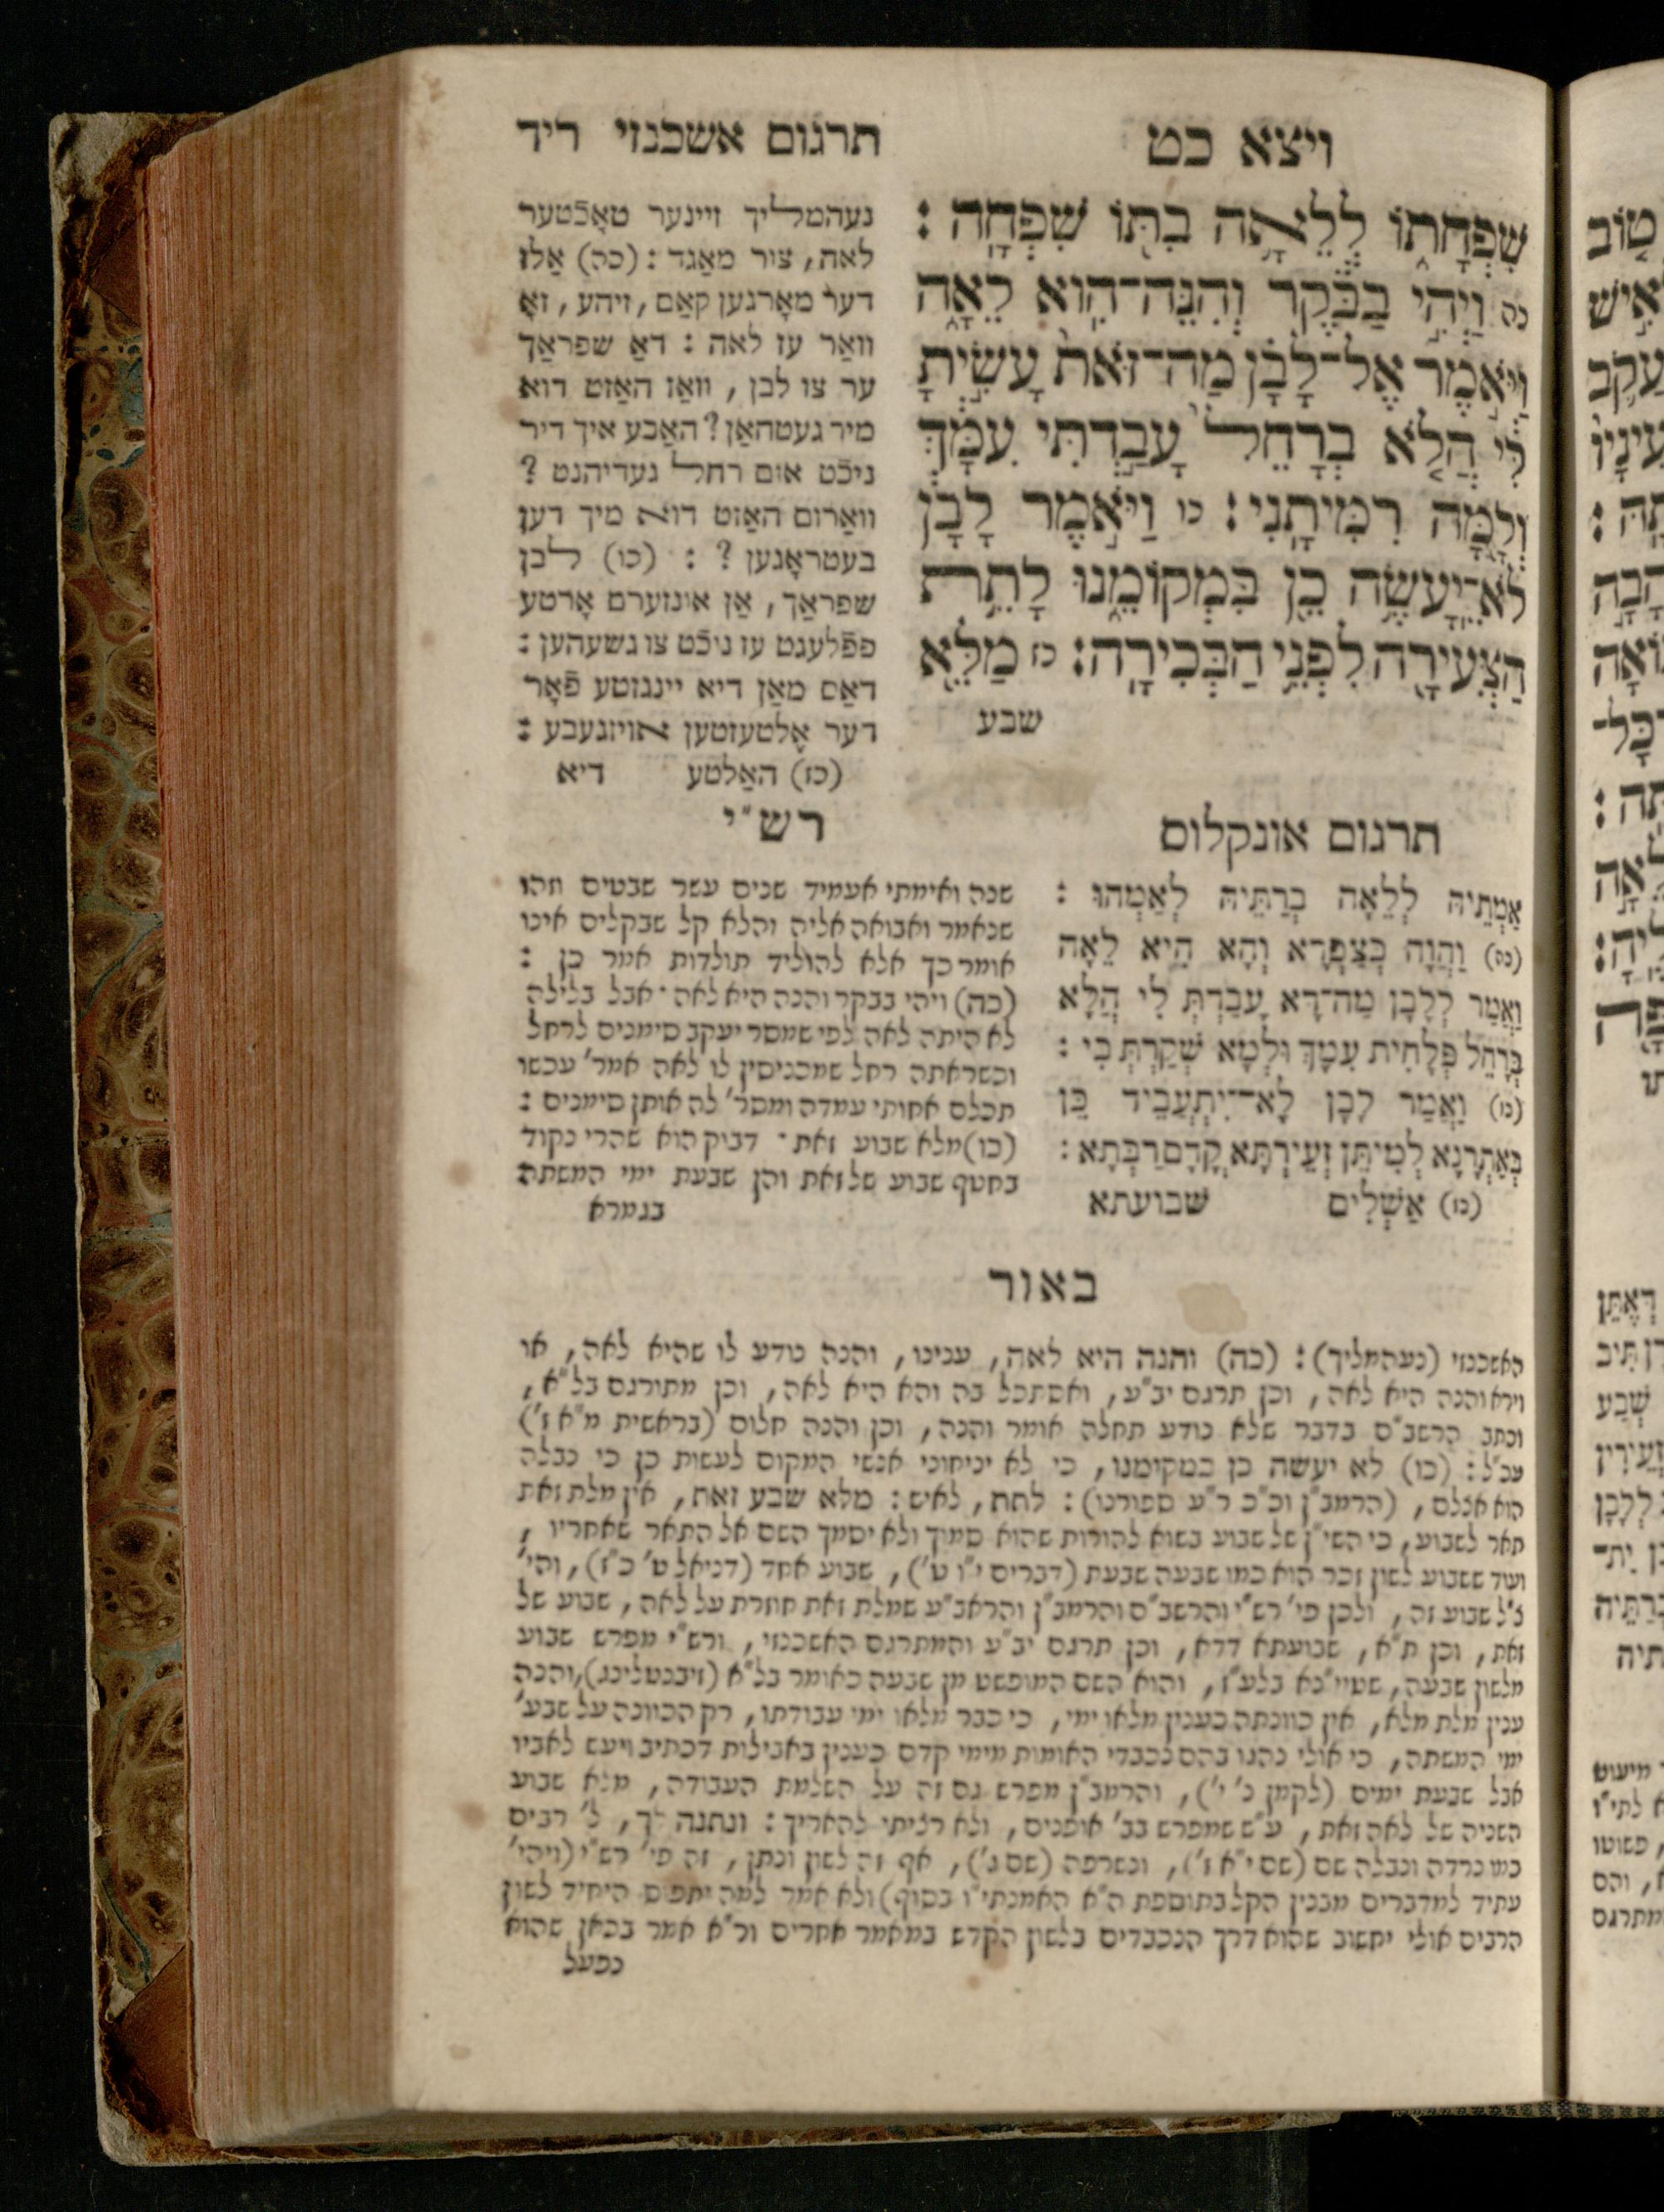 ויצא כט
תרגום אשכנזי ריד
שִׁפְחָתוֹ לְלֵאָה בִתּוֹ שִׁפְחָה :
כה וַיְהִי בַבֹּקֶר וְהִנֵּה־הִוא לֵאָה
וַיֹּאמֶר אֶל־לָבָן מַה־זֹּאת עָשִׂיתָ
לִּי הֲלֹא בְרָחֵל עָבַדְתִּי עִמָּךְ
וְלָמָּה רִמִּיתָנִי : כו וַיֹּאמֶר לָבָן
לֹא־יֵעָשֶׂה כֵן בִּמְקוֹמֵנוּ לָתֵת
הַצְּעִירָה לִפְנֵי הַבְּכִירָה : כז מַלֵּא
שבע
נעהמליך זיינער טאָכֿטער
לאה, צור מאַגד : (כה) אַלז
דער מאָרגען קאַם, זיהע, זאָ
וואַר עז לאה : דאַ שפראַך
ער צו לבן, וואַז האַזט דוא
מיר געטהאַן ? האַבע איך דיר
ניכֿט אום רחל געדיהנט ?
וואַרום האַזט דוא מיך דען
בעטראָגען ? : (כו) לבן
שפראַך, אַן אונזערם אָרטע
פפֿלעגט עז ניכֿט צו גשעהען :
דאַס מאַן דיא יינגזטע פֿאָר
דער אָלטעזטען אויזגעבע :
(כז) האַלטע דיא
תרגום אונקלוס
אַמְתֵיהּ לְלֵאָה בְרַתֵּיהּ לְאַמְהוּ :
(כה) וַהֲוָה בְצַפְרָא וְהָא הִיא לֵאָה
וַאֲמַר לְלָבָן מַה־דָּא עֲבַדְתְּ לִי הֲלָא
בְּרָחֵל פְּלָחִית עִמָּךְ וּלְמָא שְׁקַרְתְּ בִּי :
(כו) וַאֲמַר לָבָן לָא־יִתְעֲבֵיד כֵּן
בְּאַתְרָנָא לְמִיתַּן זְעֵירְתָּא קֳדָם רַבְּתָא :
(כז) אַשְׁלִים שבועתא
רש״י
שנה ואימתי אעמיד שנים עשר שבטים וזהו
שנאמר ואבואה אליה והלא קל שבקלים אינו
אומר כך אלא להוליד תולדות אמר כן :
(כה) ויהי בבקר והנה היא לאה · אבל בלילה
לא היתה לאה לפי שמסר יעקב סימנים לרחל
וכשראתה רחל שמכניסין לו לאה אמר׳ עכשו
תכלם אחותי עמדה ומסר׳ לה אותן סימנים :
(כז) מלא שבוע זאת · דבוק הוא שהרי נקוד
בחטף שבוע של זאת והן שבעת ימי המשתה
בגמרא
באור
האשכנזי (נעהמליך) : (כה) והנה היא לאה, ענינו, והנה נודע לו שהיא לאה, או
וירא והנה היא לאה, וכן תרגם יב״ע, ואסתכל בה והא היא לאה, וכן מתורגם בל״א,
וכתב הרשב״ם בדבר שלא נודע תחלה אומר והנה, וכן והנה חלום (בראשית מ״א ז׳)
עכ״ל : (כו) לא יעשה כן במקומנו, כי לא יניחוני אנשי המקום לעשות כן כי נבלה
הוא אצלם, (הרמב״ן וכ״כ ר״ע ספורנו) : לתת, לאיש : מלא שבע זאת, אין מלת זאת
תאר לשבוע, כי השי״ן של שבוע בשוא להורות שהוא סמוך ולא יסמך השם אל התאר שאחריו,
ועוד ששבוע לשון זכר הוא כמו שבעה שבעת (דברים י״ו ט׳), שבוע אחד (דניאל ט׳ כ״ז), והי׳
צ״ל שבוע זה, ולכן פי׳ רש״י והרשב״ם והרמב״ן והראב״ע שמלת זאת חוזרת על לאה, שבוע של
זאת, וכן ת״א, שבועתא דדא, וכן תרגם יב״ע והמתרגם האשכנזי, ורש״י מפרש שבוע
מלשון שבעה, שטיי״נא בלע״ז, והוא השם המופשט מן שבעה כאומר בל״א (זיבנטלינג), והנה
ענין מלת מלא, אין כוונתה כענין מלאו ימי, כי כבר מלאו ימי עבודתו, רק הכוונה על שבע׳
ימי המשתה, כי אולי נהגו בהם נכבדי האומות מימי קדם כענין באבילות דכתיב ויעש לאביו
אבל שבעת ימים (לקמן נ׳ י׳), והרמב״ן מפרש גם זה על השלמת העבודה, מלא שבוע
השניה של לאה זאת, ע״ש שמפרש בב׳ אופנים, ולא רציתי להאריך : ונתנה לך, ל׳ רבים
כמו נרדה ונבלה שם (שם י״א ז׳), ונשרפה (שם ג׳), אף זה לשון ונתן, זה פי׳ רש״י (ויהי׳
עתיד למדברים מבנין הקל בתוספת ה״א האמנתי״ו בסוף) ולא אמר למה יתפוס היחיד לשון
הרבים אולי יחשוב שהוא דרך הנכבדים בלשון הקדש במאמר אחרים ור״א אמר בכאן שהוא
נפעל